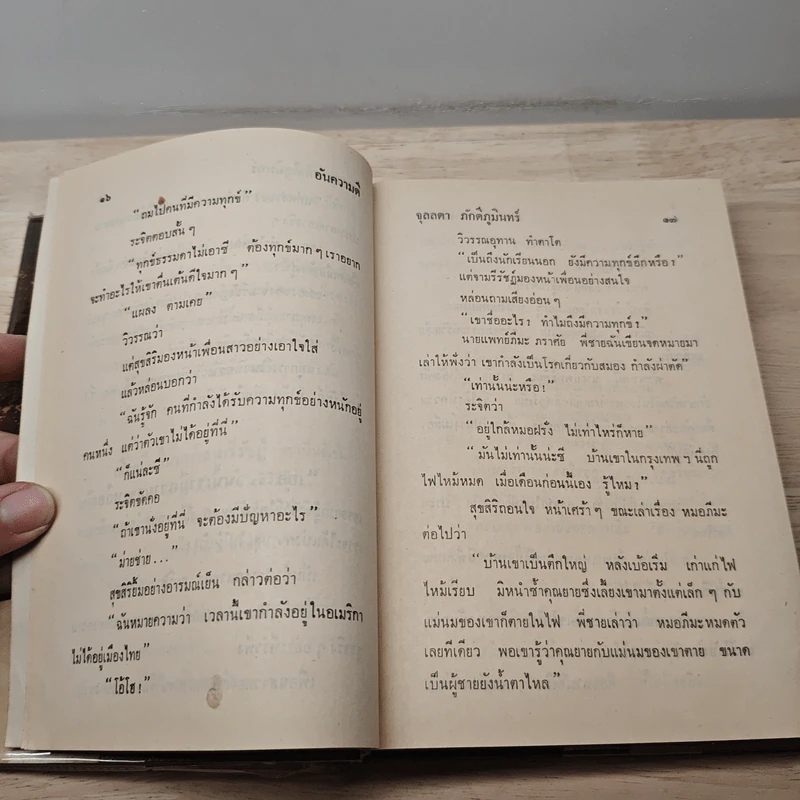 ๑๖
อันความดี
“ถมไปคนที่มีความทุกข์”
ระจิตตอบสั้น ๆ
“ทุกข์ธรรมดาไม่เอาซี ต้องทุกข์มาก ๆ เราอยาก
จะทำอะไรให้เขาตื่นเต้นดีใจมาก ๆ”
“แผลง ตามเคย”
วิวรรณว่า
แต่สุขสิริมองหน้าเพื่อนสาวอย่างเอาใจใส่
แล้วหล่อนบอกว่า
“ฉันรู้จัก คนที่กำลังได้รับความทุกข์อย่างหนักอยู่
คนหนึ่ง แต่ว่าตัวเขาไม่ได้อยู่ที่นี่”
“ก็แน่ละซี”
ระจิตขัดคอ
“ถ้าเขานั่งอยู่ที่นี่ จะต้องมีปัญหาอะไร”
“ม่ายช่าย...”
สุขสิริยิ้มอย่างอารมณ์เย็น กล่าวต่อว่า
“ฉันหมายความว่า เวลานี้เขากำลังอยู่ในอเมริกา
ไม่ได้อยู่เมืองไทย”
“โอ้โฮ!”
จุลลดา ภักดีภูมินทร์
๑๗
วิวรรณอุทาน ทำตาโต
“เป็นถึงนักเรียนนอก ยังมีความทุกข์อีกหรือ?”
แต่จามรีรัชฏ์มองหน้าเพื่อนอย่างสนใจ
หล่อนถามเสียงอ่อน ๆ
“เขาชื่ออะไร? ทำไมถึงมีความทุกข์?”
นายแพทย์ภีมะ ภราศัย พี่ชายฉันเขียนจดหมายมา
เล่าให้ฟังว่า เขากำลังเป็นโรคเกี่ยวกับสมอง กำลังผ่าตัด”
“เท่านั้นน่ะหรือ!”
ระจิตว่า
“อยู่ใกล้หมอฝรั่ง ไม่เท่าไหร่ก็หาย”
“มันไม่เท่านั้นน่ะซี บ้านเขาในกรุงเทพ ฯ นี่ถูก
ไฟไหม้หมด เมื่อเดือนก่อนนี้เอง รู้ไหม?”
สุขสิริถอนใจ หน้าเศร้า ๆ ขณะเล่าเรื่อง หมอภีมะ
ต่อไปว่า
“บ้านเขาเป็นตึกใหญ่ หลังเบ้อเริ่ม เก่าแก่ไฟ
ไหม้เรียบ มิหนำซ้ำคุณยายซึ่งเลี้ยงเขามาตั้งแต่เล็ก ๆ กับ
แม่นมของเขาก็ตายในไฟ พี่ชายเล่าว่า หมอภีมะหมดตัว
เลยทีเดียว พอเขารู้ว่าคุณยายกับแม่นมของเขาตาย ขนาด
เป็นผู้ชายยังน้ำตาไหล”